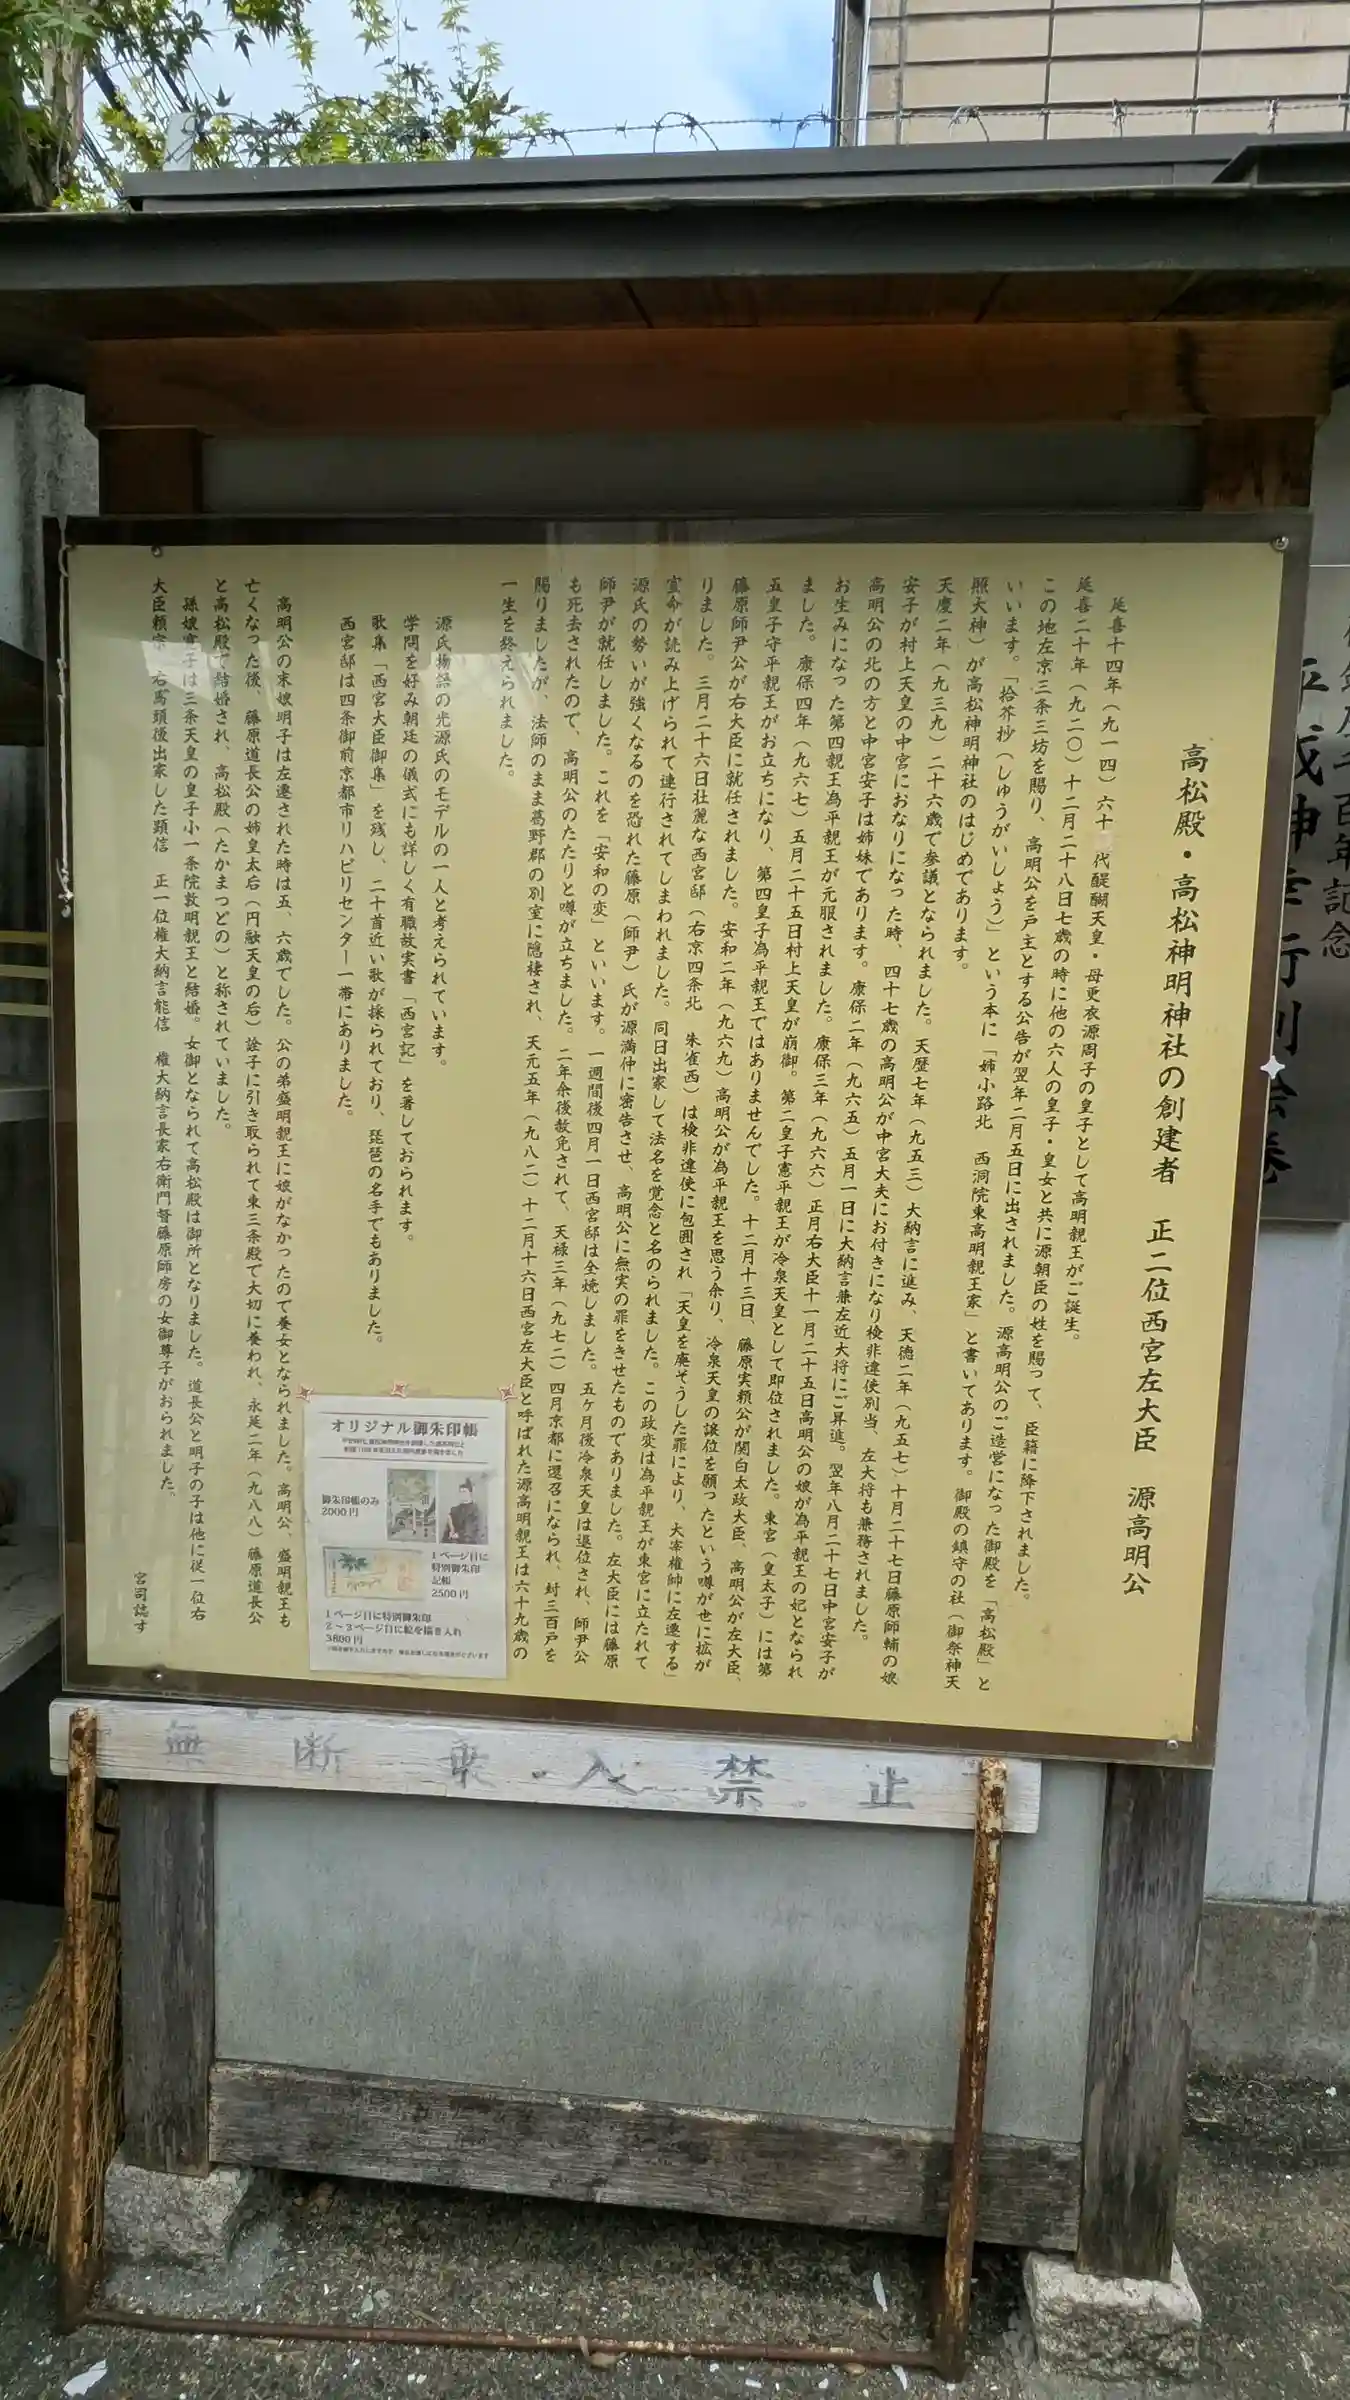 高松殿・高松神明神社の創建者 正二位西宮左大臣 源高明公
延喜十四年(九一四)六十 代醍醐天皇・母更衣源周子の皇子として高明親王がご誕生。
延喜二十年(九二〇)十二月二十八日七歳の時に他の六人の皇子・皇女と共に源朝臣の姓を賜って、臣籍に降下されました。
この地左京三条三坊を賜り、高明公を戸主とする公告が翌年二月五日に出されました。源高明公のご造営になった御殿を「高松殿」と
いいます。「拾芥抄(しゅうがいしょう)」という本に「姉小路北 西洞院東高明親王家」と書いてあります。御殿の鎮守の社(御祭神天
照大神)が高松神明神社のはじめであります。
天慶二年(九三九)二十六歳で参議となられました。天歴七年(九五三)大納言に進み、天徳二年(九五七)十月二十七日藤原師輔の娘
安子が村上天皇の中宮におなりになった時、四十七歳の高明公が中宮大夫にお付きになり検非違使別当、左大将も兼務されました。
高明公の北の方と中宮安子は姉妹であります。康保二年(九六五)五月一日に大納言兼左近大将にご昇進。翌年八月二十七日中宮安子が
お生みになった第四親王為平親王が元服されました。康保三年(九六六)正月右大臣十一月二十五日高明公の娘が為平親王の妃となられ
ました。康保四年(九六七)五月二十五日村上天皇が崩御。第二皇子憲平親王が冷泉天皇として即位されました。東宮(皇太子)には第
五皇子守平親王がお立ちになり、第四皇子為平親王ではありませんでした。十二月十三日、藤原実頼公が関白太政大臣、高明公が左大臣、
藤原師尹公が右大臣に就任されました。安和二年(九六九)高明公が為平親王を思う余り、冷泉天皇の譲位を願ったという噂が世に拡が
りました。三月二十六日壮麗な西宮邸(右京四条北 朱雀西)は検非違使に包囲され「天皇を廃そうした罪により、大宰権師に左遷する」
宣命が読み上げられて連行されてしまわれました。同日出家して法名を覚念と名のられました。この政変は為平親王が東宮に立たれて
源氏の勢いが強くなるのを恐れた藤原(師尹)氏が源満仲に密告させ、高明公に無実の罪をきせたものでありました。左大臣には藤原
師尹が就任しました。これを「安和の変」といいます。一週間後四月一日西宮邸は全焼しました。五ヶ月後冷泉天皇は退位され、師尹公
も死去されたので、高明公のたたりと噂が立ちました。二年余後赦免されて、天禄三年(九七二)四月京都に還召になられ、封三百戸を
賜りましたが、法師のまま葛野郡の別室に隠棲され、天元五年(九八二)十二月十六日西宮左大臣と呼ばれた源高明親王は六十九歳の
一生を終えられました。
源氏物語の光源氏のモデルの一人と考えられています。
学問を好み朝廷の儀式にも詳しく有職故実書「西宮記」を著しておられます。
歌集「西宮大臣御集」を残し、二十首近い歌が採られており、琵琶の名手でもありました。
西宮邸は四条御前京都市リハビリセンター一帯にありました。
高明公の末娘明子は左遷された時は五、六歳でした。公の弟盛明親王に娘がなかったので養女となられました。高明公、盛明親王も
亡くなった後、藤原道長公の姉皇太后(円融天皇の后)詮子に引き取られて東三条殿で大切に養われ、永延二年(九八八)藤原道長公
と高松殿で結婚され、高松殿(たかまつどの)と称されていました。
孫娘寛子は三条天皇の皇子小一条院敦明親王と結婚。女御となられて高松殿は御所となりました。道長公と明子の子は他に従一位右
大臣頼宗 右馬頭後出家した顕信 正一位権大納言能信 権大納言長家右衛門督藤原師房の女御尊子がおられました。
宮司誌す
オリジナル御朱印帳
御朱印帳のみ
2000円
1ページ目に
特別御朱印
記帳
2500円
1ページ目に特別御朱印
2〜3ページ目に絵を描き入れ
3800円
無断乗入禁止